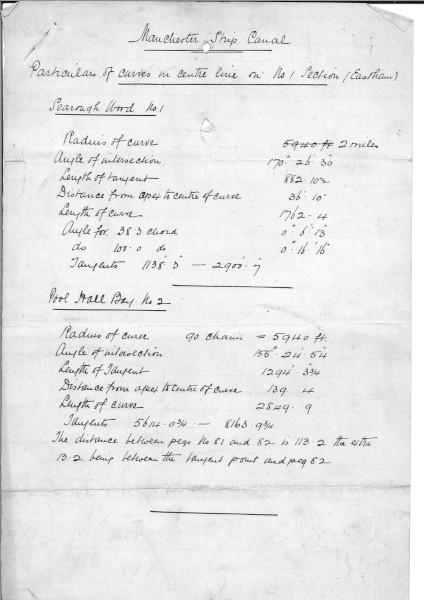 Manchester Ship Canal
Particulars of curves in centre line on No 1 Section (Eastham)
Wood No 1
Radius of curve 5940 ft 2 miles
Angle of intersection 170° 26' 30"
Length of tangent 882 · 10½
Distance from apex to centre of curve 36 · 10
Length of curve 1762 · 4
Angle for 38·3 chord 0° 6' 13"
do 100·0 do 0° 16' 16"
Tangents 1138' 3" — 2900' 7"
Pool Hall Bay No 2
Radius of curve 90 chains = 5940 ft.
Angle of intersection 155° 24' 54"
Length of Tangent 1294 · 3¾
Distance from apex to centre of curve 139 4
Length of curve 2549 · 9
Tangents 5614 · 0¾ — 8163 9¾
The distance between pegs No 81 and 82 is 113·2 the extra
13·2 being between the tangent point and peg 82